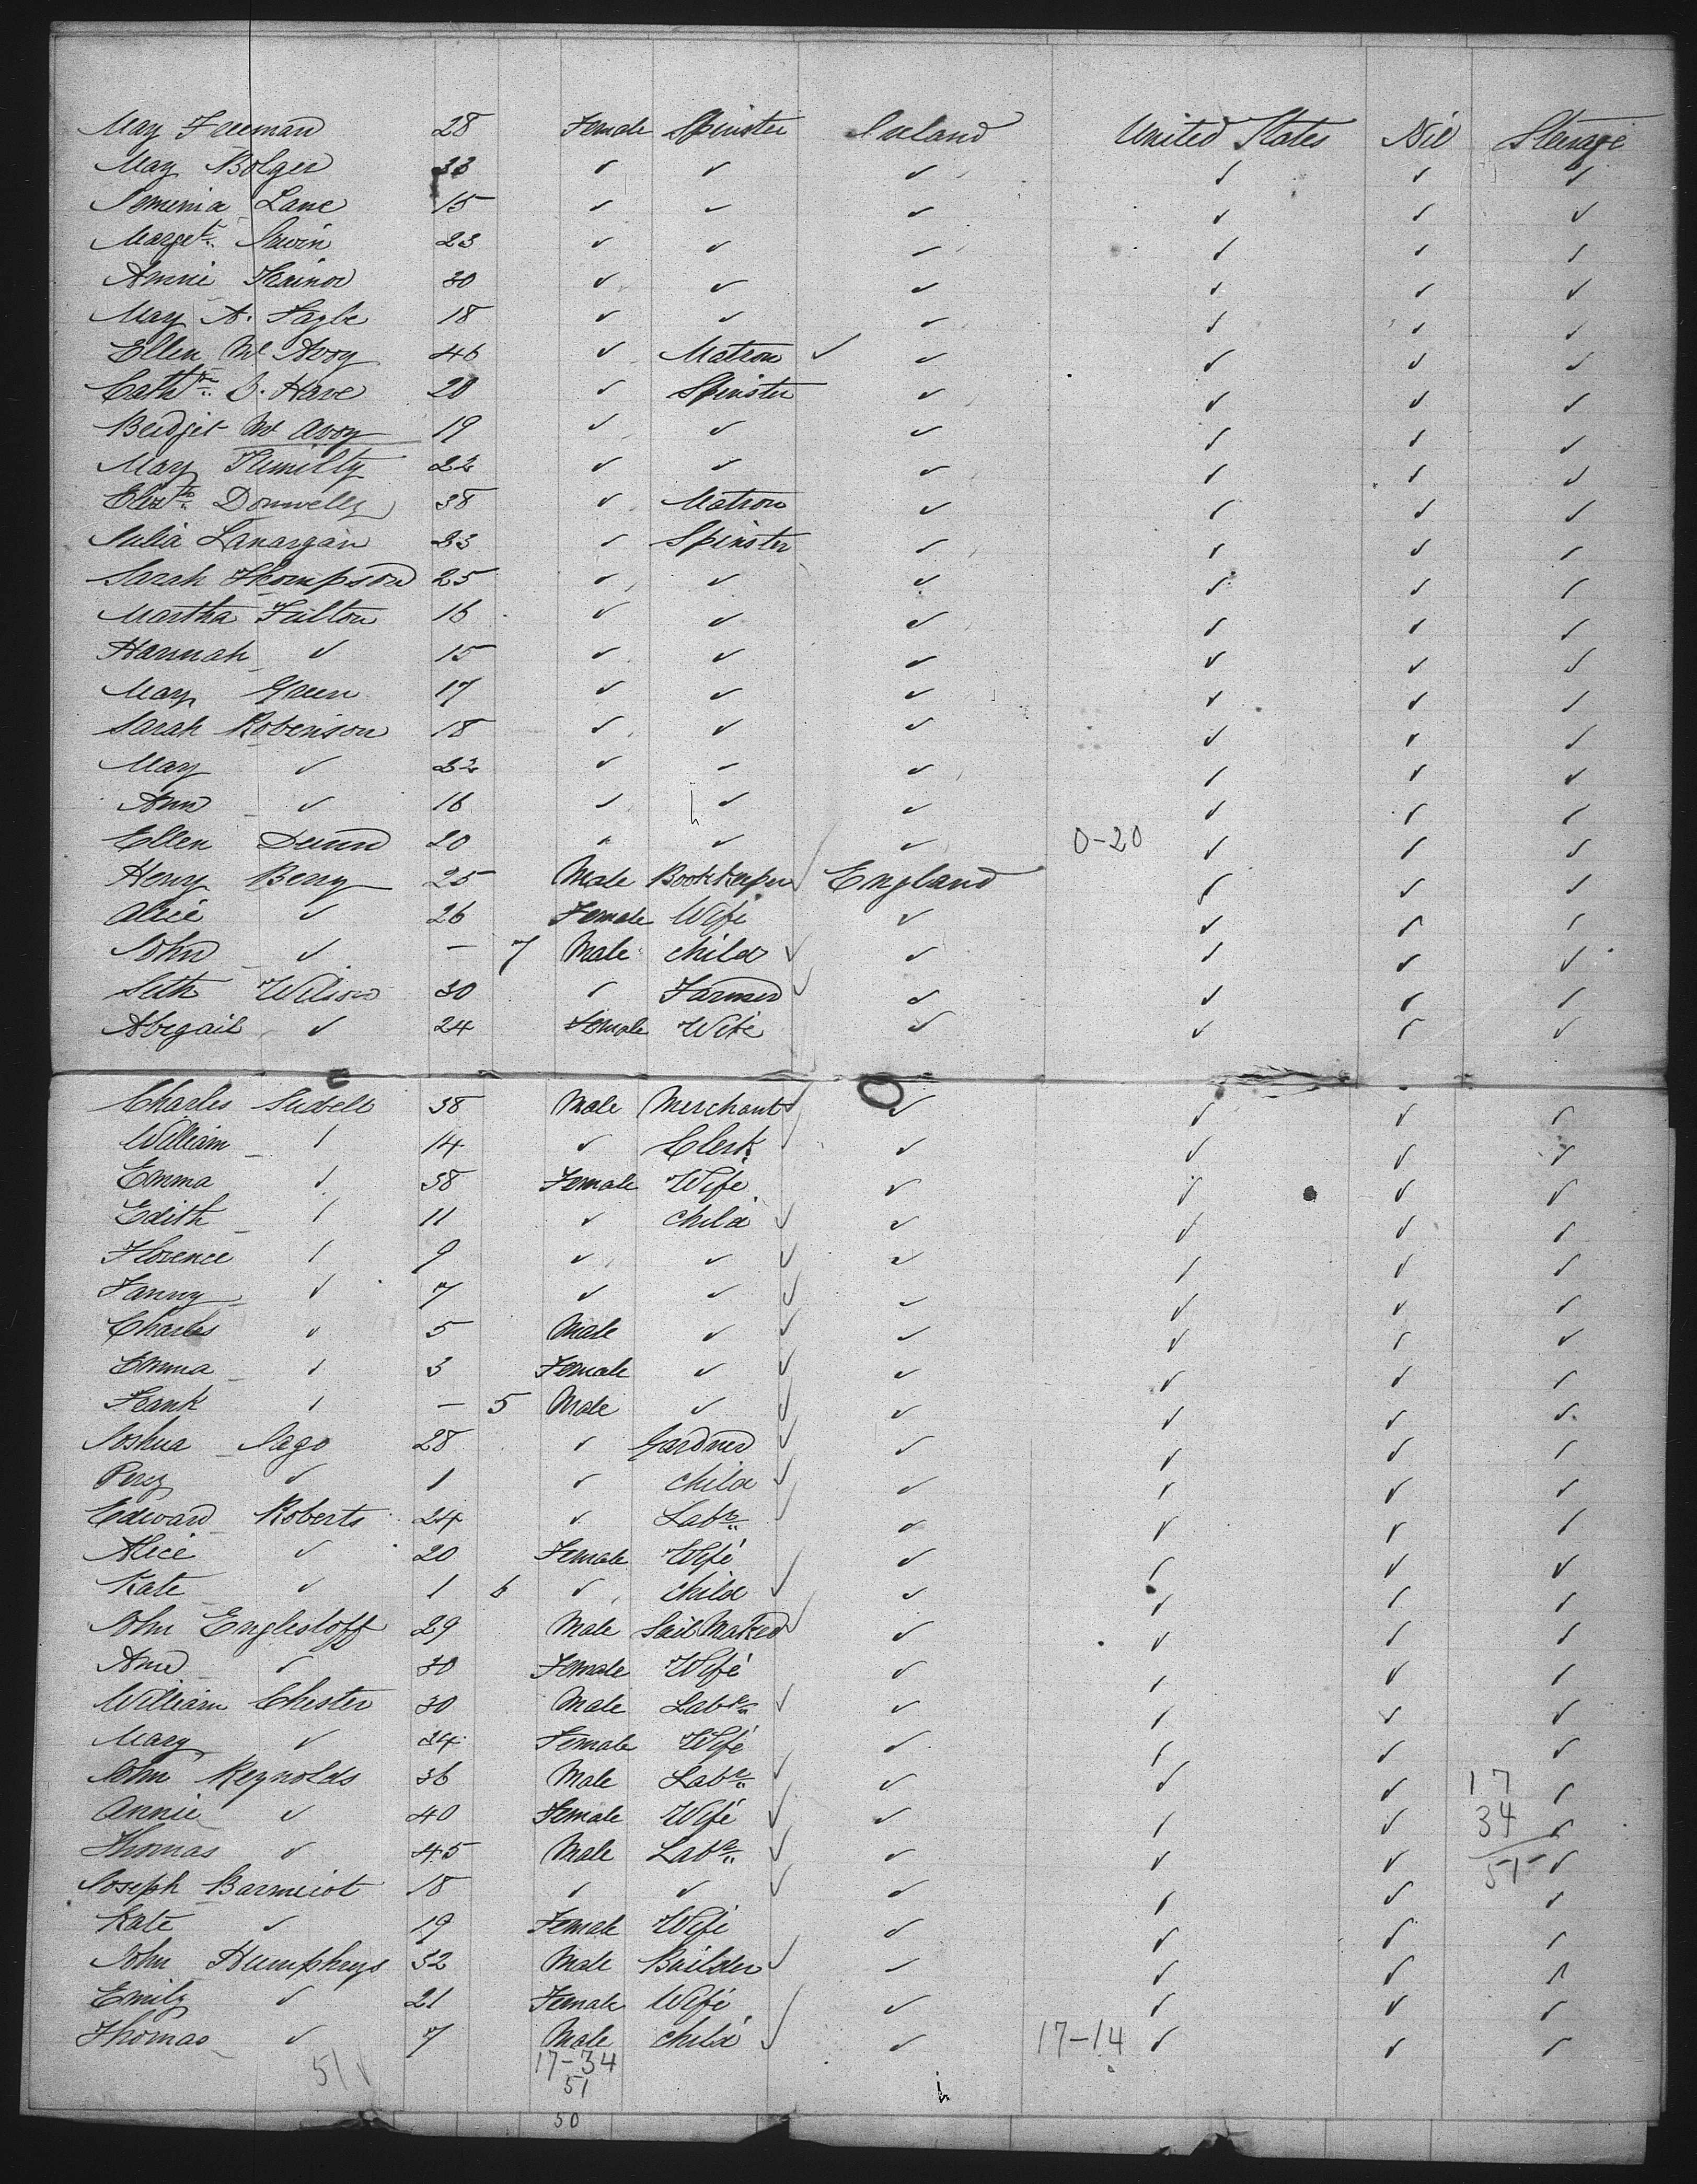 May Freeman 28 Female Spinster Ireland United States Nil Steerage
May Bolger 33 ✓ ✓ ✓ ✓ ✓ ✓
Jemimia Lane 15 ✓ ✓ ✓ ✓ ✓ ✓
Marget. Irwin 23 ✓ ✓ ✓ ✓ ✓ ✓
Annie Trainor 30 ✓ ✓ ✓ ✓ ✓ ✓
May A. 18 ✓ ✓ ✓ ✓ ✓ ✓
Ellen Mc Avoy 46 ✓ Matron ✓ ✓ ✓ ✓ ✓
Cathne. O. Hare 20 ✓ Spinster ✓ ✓ ✓ ✓
Bridget Mc Avoy 19 ✓ ✓ ✓ ✓ ✓ ✓
Mary 22 ✓ ✓ ✓ ✓ ✓ ✓
Elizth. Donnelly 38 ✓ Matron ✓ ✓ ✓ ✓
Julia Lanargan 23 ✓ Spinster ✓ ✓ ✓ ✓
Sarah Thompson 25 ✓ ✓ ✓ ✓ ✓ ✓
Martha Fulton 16 ✓ ✓ ✓ ✓ ✓ ✓
Hannah ✓ 15 ✓ ✓ ✓ ✓ ✓ ✓
Mary Green 17 ✓ ✓ ✓ ✓ ✓ ✓
Sarah Robenison 18 ✓ ✓ ✓ ✓ ✓ ✓
May ✓ 22 ✓ ✓ ✓ ✓ ✓ ✓
Ann ✓ 16 ✓ ✓ ✓ ✓ ✓ ✓
Ellen Dunn 20 ✓ ✓ ✓ 0-20 ✓ ✓ ✓
Henry Berry 25 Male BookKeeper ✓ England ✓ ✓ ✓
Alice ✓ 26 Female Wife ✓ ✓ ✓ ✓
John ✓ - 7 Male child ✓ ✓ ✓ ✓ ✓
Seth Wilson 30 ✓ Farmer ✓ ✓ ✓ ✓ ✓
Abegail ✓ 24 Female Wife ✓ ✓ ✓ ✓
Charles 38 Male Merchant ✓ ✓ ✓ ✓ ✓
William ✓ 14 ✓ Clerk ✓ ✓ ✓ ✓ ✓
Emma ✓ 38 Female Wife ✓ ✓ ✓ ✓
Edith ✓ 11 ✓ child ✓ ✓ ✓ ✓ ✓
Florence ✓ 9 ✓ ✓ ✓ ✓ ✓ ✓ ✓
Fanny ✓ 7 ✓ ✓ ✓ ✓ ✓ ✓ ✓
Charles ✓ 5 Male ✓ ✓ ✓ ✓ ✓ ✓
Emma ✓ 3 Female ✓ ✓ ✓ ✓ ✓ ✓
Frank ✓ - 5 Male ✓ ✓ ✓ ✓ ✓ ✓
Joshua Sago 28 ✓ Gardner ✓ ✓ ✓ ✓ ✓
Percy ✓ 1 ✓ child ✓ ✓ ✓ ✓ ✓
Edward Roberts 24 ✓ Labr. ✓ ✓ ✓ ✓ ✓
Alice ✓ 20 Female Wife ✓ ✓ ✓ ✓
Kate ✓ 1 6 ✓ child ✓ ✓ ✓ ✓ ✓
John Englestoff 29 Male Sail Maker ✓ ✓ ✓ ✓ ✓
Ann ✓ 30 Female Wife ✓ ✓ ✓ ✓
William Chester 30 Male Labr. ✓ ✓ ✓ ✓ ✓
Mary ✓ 34 Female Wife ✓ ✓ ✓ ✓
John Reynolds 36 Male Labr. ✓ ✓ ✓ ✓ 17 ✓
Annie ✓ 40 Female Wife ✓ ✓ ✓ ✓ 34 ✓
Thomas ✓ 45 Male Labr. ✓ ✓ ✓ ✓ 51 ✓
Joseph Barmicot 18 ✓ ✓ ✓ ✓ ✓ ✓ ✓
Kate ✓ 19 Female Wife ✓ ✓ ✓ ✓
John Humphreys 32 Male Builder ✓ ✓ ✓ ✓ ✓
Emily ✓ 21 Female Wife ✓ ✓ ✓ ✓
Thomas ✓ 7 Male child ✓ ✓ 17-14 ✓ ✓ ✓
51 ✓ 17-34
51
50